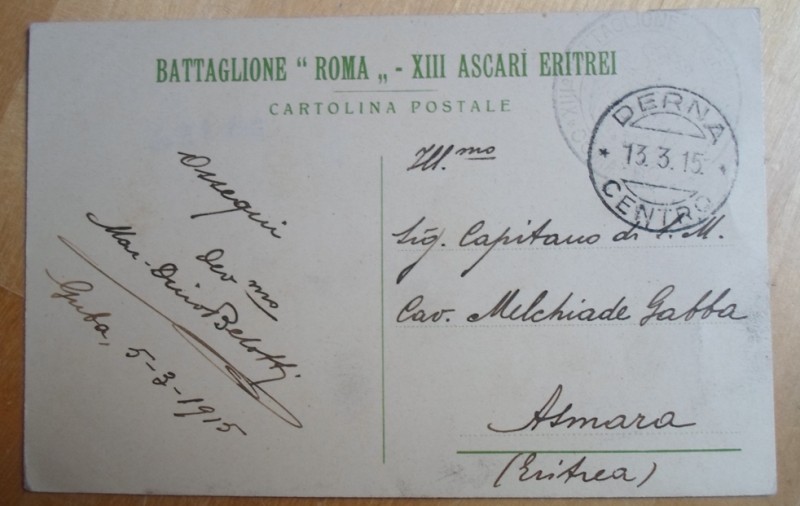 BATTAGLIONE “ ROMA „ - XIII ASCARI ERITREI
CARTOLINA POSTALE
BATTAGLIONE
DERNA
* 13.3.15. *
CENTRO
Ossequi
Dev mo
Mar. Dino Belotti
Guba, 5-3-1915
Ill.mo
Sig. Capitano di S. M.
Cav. Melchiade Gabba
Asmara
(Eritrea)